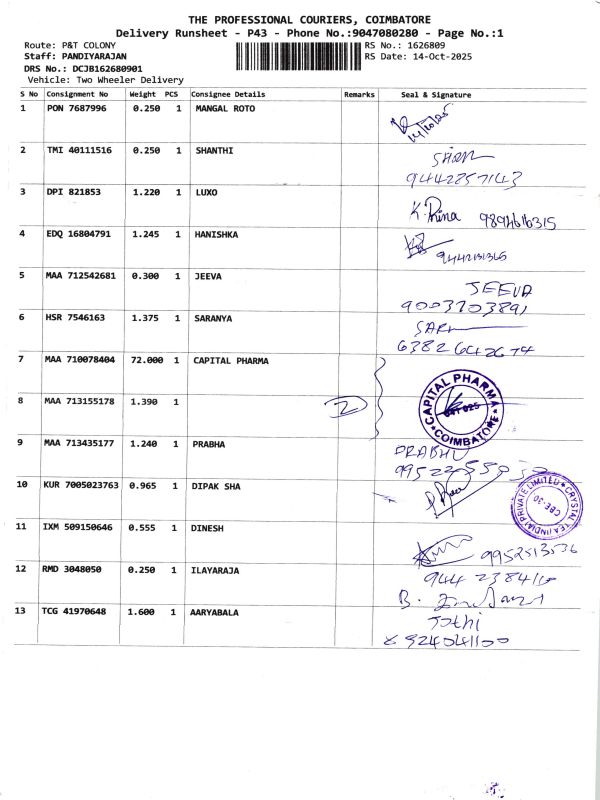 THE PROFESSIONAL COURIERS, COIMBATORE
Delivery Runsheet - P43 - Phone No.:9047080280 - Page No.:1
Route: P&T COLONY
RS No.: 1626809
Staff: PANDIYARAJAN
RS Date: 14-Oct-2025
DRS No.: DCJB162680901
Vehicle: Two Wheeler Delivery
S No Consignment No Weight PCS Consignee Details Remarks Seal & Signature
1 PON 7687996 0.250 1 MANGAL ROTO
14/10/25
2 TMI 40111516 0.250 1 SHANTHI
9442257143
3 DPI 821853 1.220 1 LUXO
K.
4 EDQ 16804791 1.245 1 HANISHKA
5 MAA 712542681 0.300 1 JEEVA
JEEVA
9003703891
6 HSR 7546163 1.375 1 SARANYA
6382642674
7 MAA 710078404 72.000 1 CAPITAL PHARMA
CAPITAL PHARMA
COIMBATORE
8 MAA 713155178 1.390 1
2
9 MAA 713435177 1.240 1 PRABHA
PRABHU
10 KUR 7005023763 0.965 1 DIPAK SHA
CRYSTAL TEA (INDIA) PRIVATE LIMITED
CBE-30
11 IXM 509150646 0.555 1 DINESH
9952513536
12 RMD 3048050 0.250 1 ILAYARAJA
B.
13 TCG 41970648 1.600 1 AARYABALA
Jothi